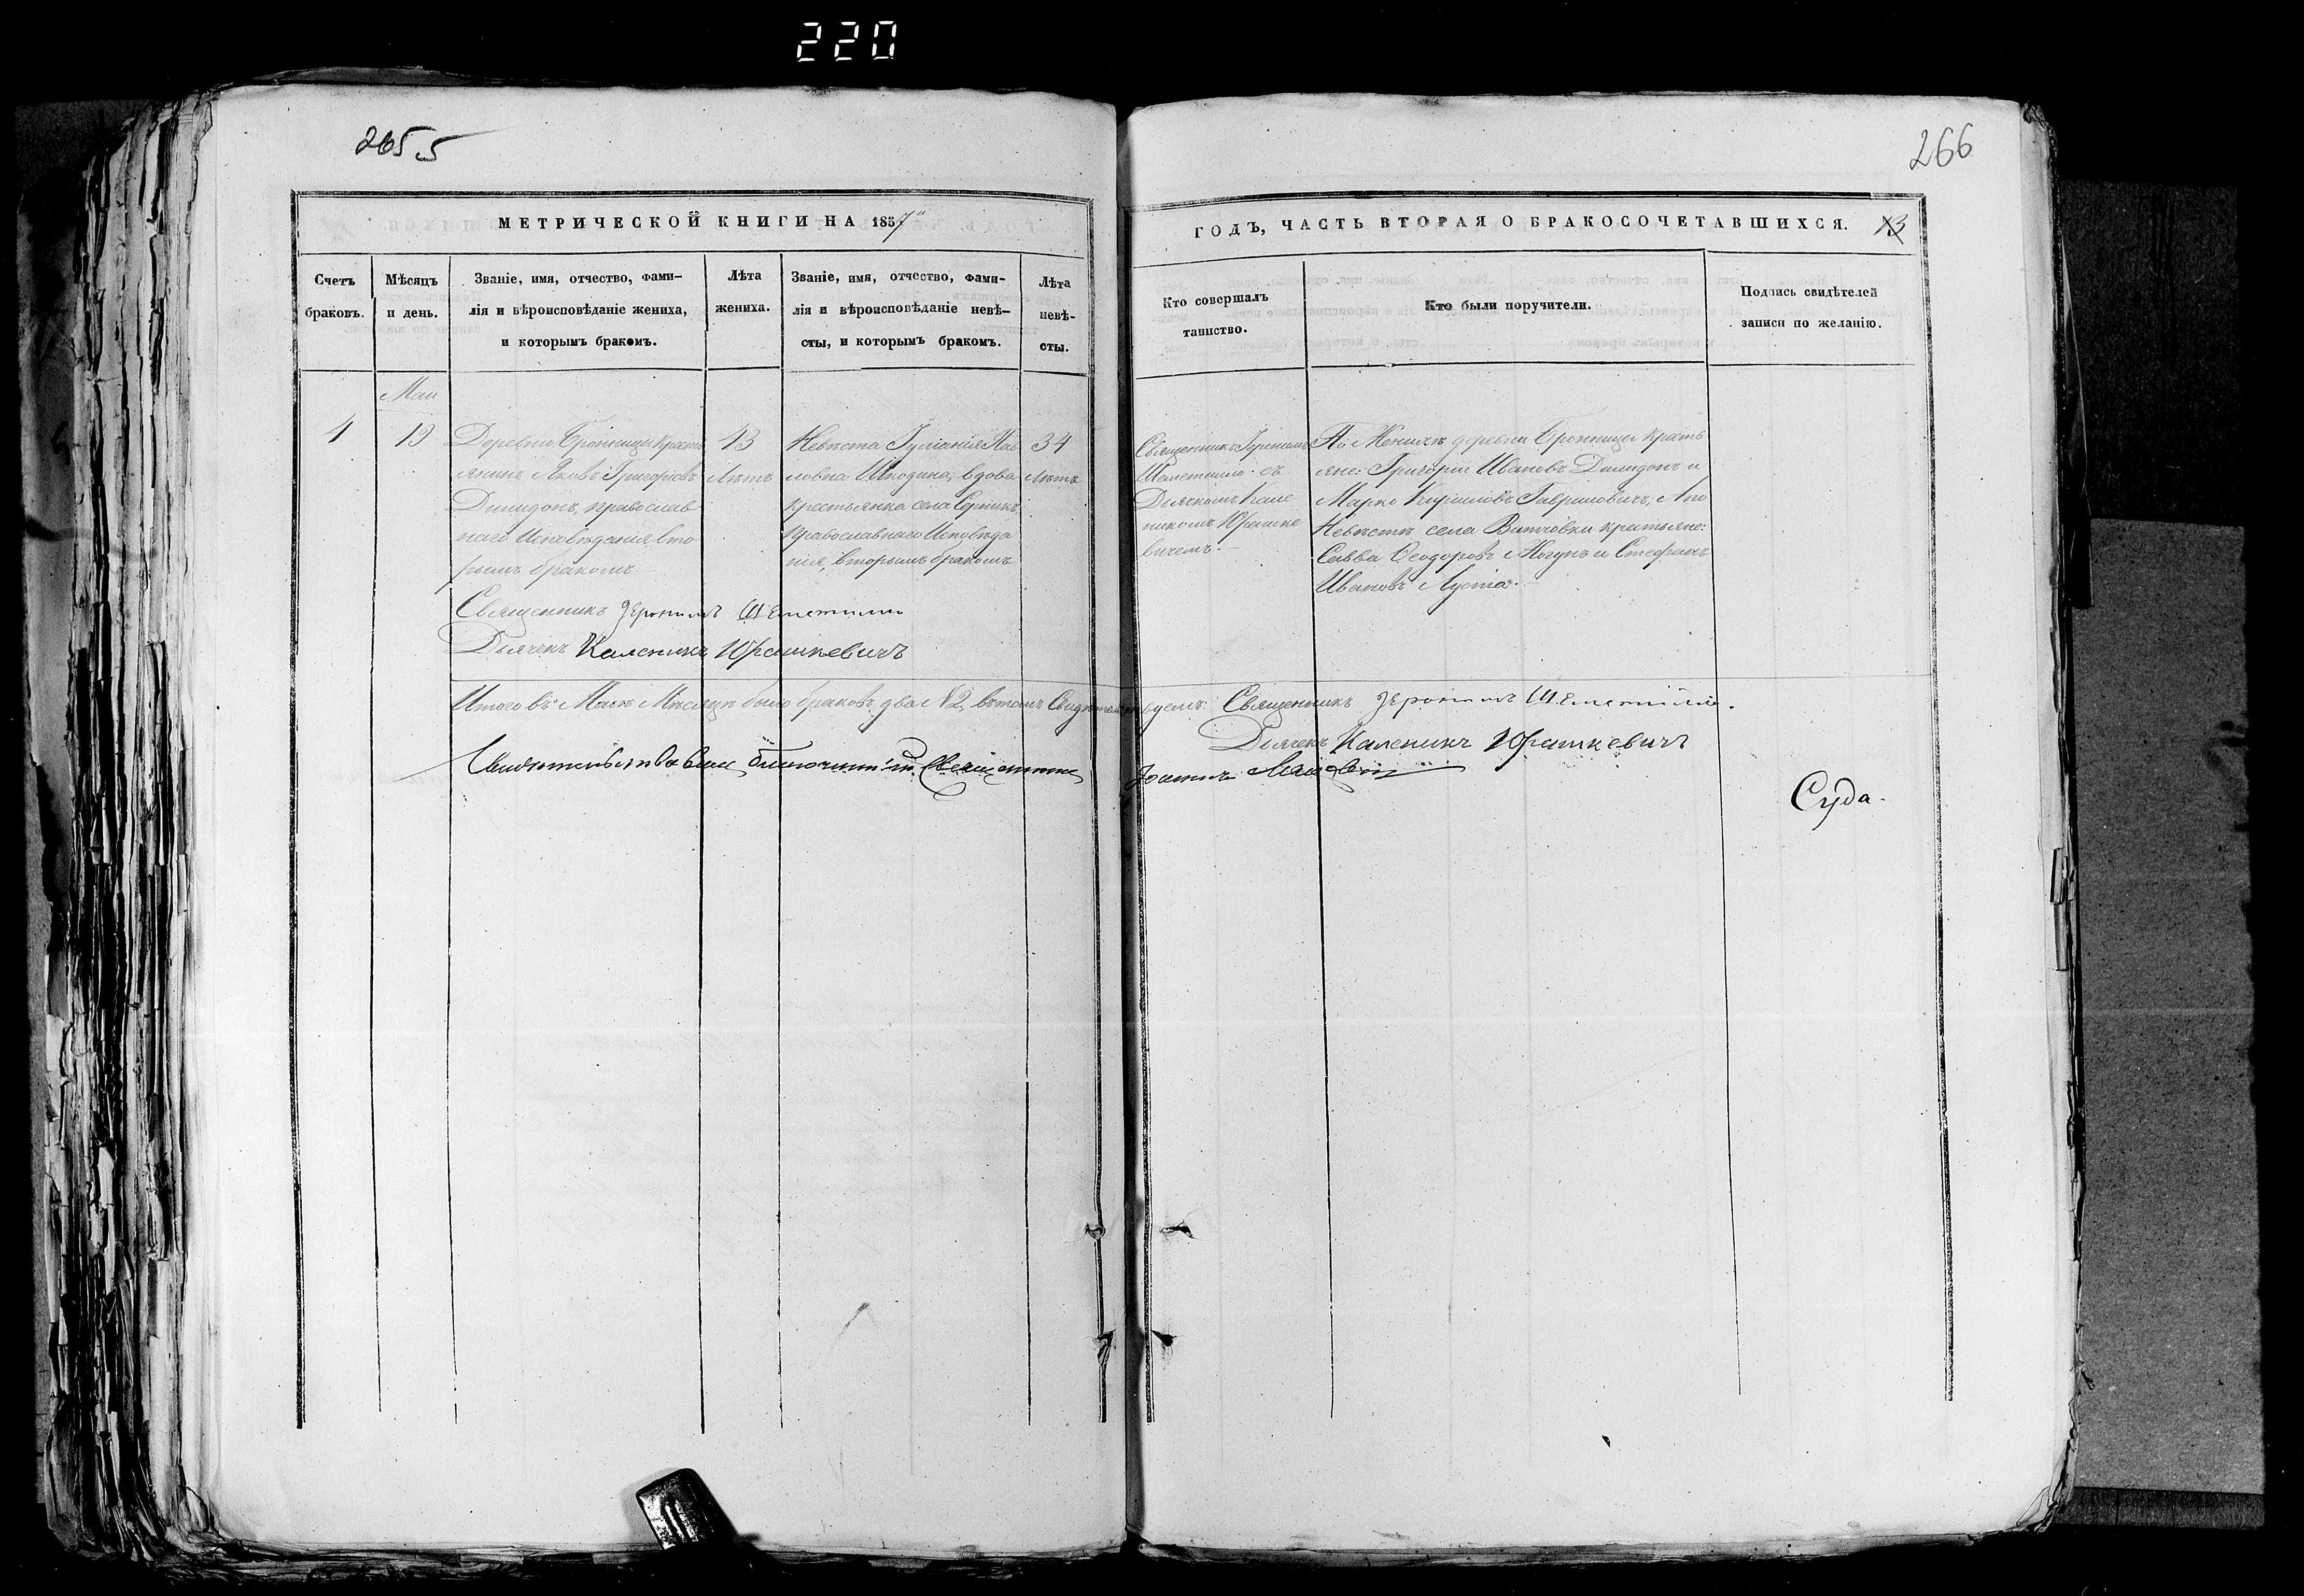 220
265 5
266
МЕТРИЧЕСКОЙ КНИГИ НА 1857
ГОДЪ, ЧАСТЬ ВТОРАЯ О БРАКОСОЧЕТАВШИХСЯ.
Счетъ
браковъ.
Мѣсяцъ
и день.
Званіе, имя, отчество, фами-
лія и вѣроисповѣданіе жениха,
и которымъ бракомъ.
Лѣта
жениха.
Званіе, имя, отчество, фами-
лія и вѣроисповѣданіе невѣ-
сты, и которымъ бракомъ.
Лѣта
невѣ-
сты.
Кто совершалъ
таинство.
Кто были поручители.
Подпись свидѣтелей
записи по желанію.
Маи
4
19
Деревни Бронницы крестъ
янинъ Яковъ Григорıевъ
Дмидонъ, православ
наго Исповѣданія вто
рымъ бракомъ
43
Лѣтъ
Невѣста Іуліанія Пав
ловна Шкодина, вдова
крестьянка села Серникъ
Православнаго Исповѣда
нія, вторымъ бракомъ
34
Лѣтъ
Священникъ Іеронимъ
Шеметилло съ
Дьячкомъ Кале
никомъ Юрашке
вичемъ.
По Женихѣ деревни Бронницы кресть
яне: Григорій Ивановъ Дмидонъ и
Марко Кириловъ Гавриловичъ; А по
Невѣстѣ села Витчовки крестьяне:
Савва Ѳеодоровъ Когунъ и Стефанъ
Ивановъ Луста.
Священникъ Іеронимъ Шеметилло
Дьячекъ Каленикъ Юрашкевичъ
Итого въ Маѣ Мѣсяцѣ было браковъ два №2, въ томъ Свидѣтельствуемъ: Священникъ Іеронимъ Шеметилло.
Дьячекъ Каленикъ Юрашкевичъ
Свидѣтельствовалъ благочинный Священникъ Іоаннъ
Суда.